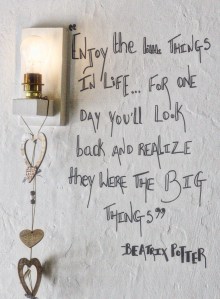 "Enjoy the little THINGS
IN LIFE... FOR ONE
DAY you'LL LOOK
back AND REALIZE
they WERE THE BIG
THINGS"
BEATRIX POTTER